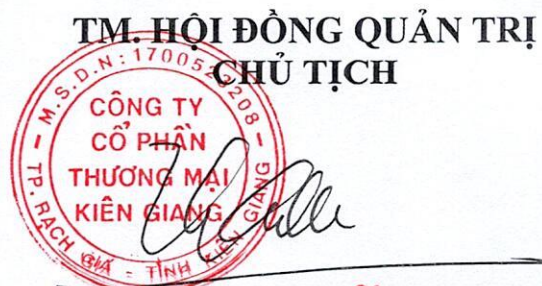 TM. HỘI ĐỒNG QUẢN TRỊ
CHỦ TỊCH
M.S.D.N: 1700523208
CÔNG TY
CỔ PHẦN
THƯƠNG MẠI
KIÊN GIANG
TP. RẠCH GIÁ - TỈNH KIÊN GIANG